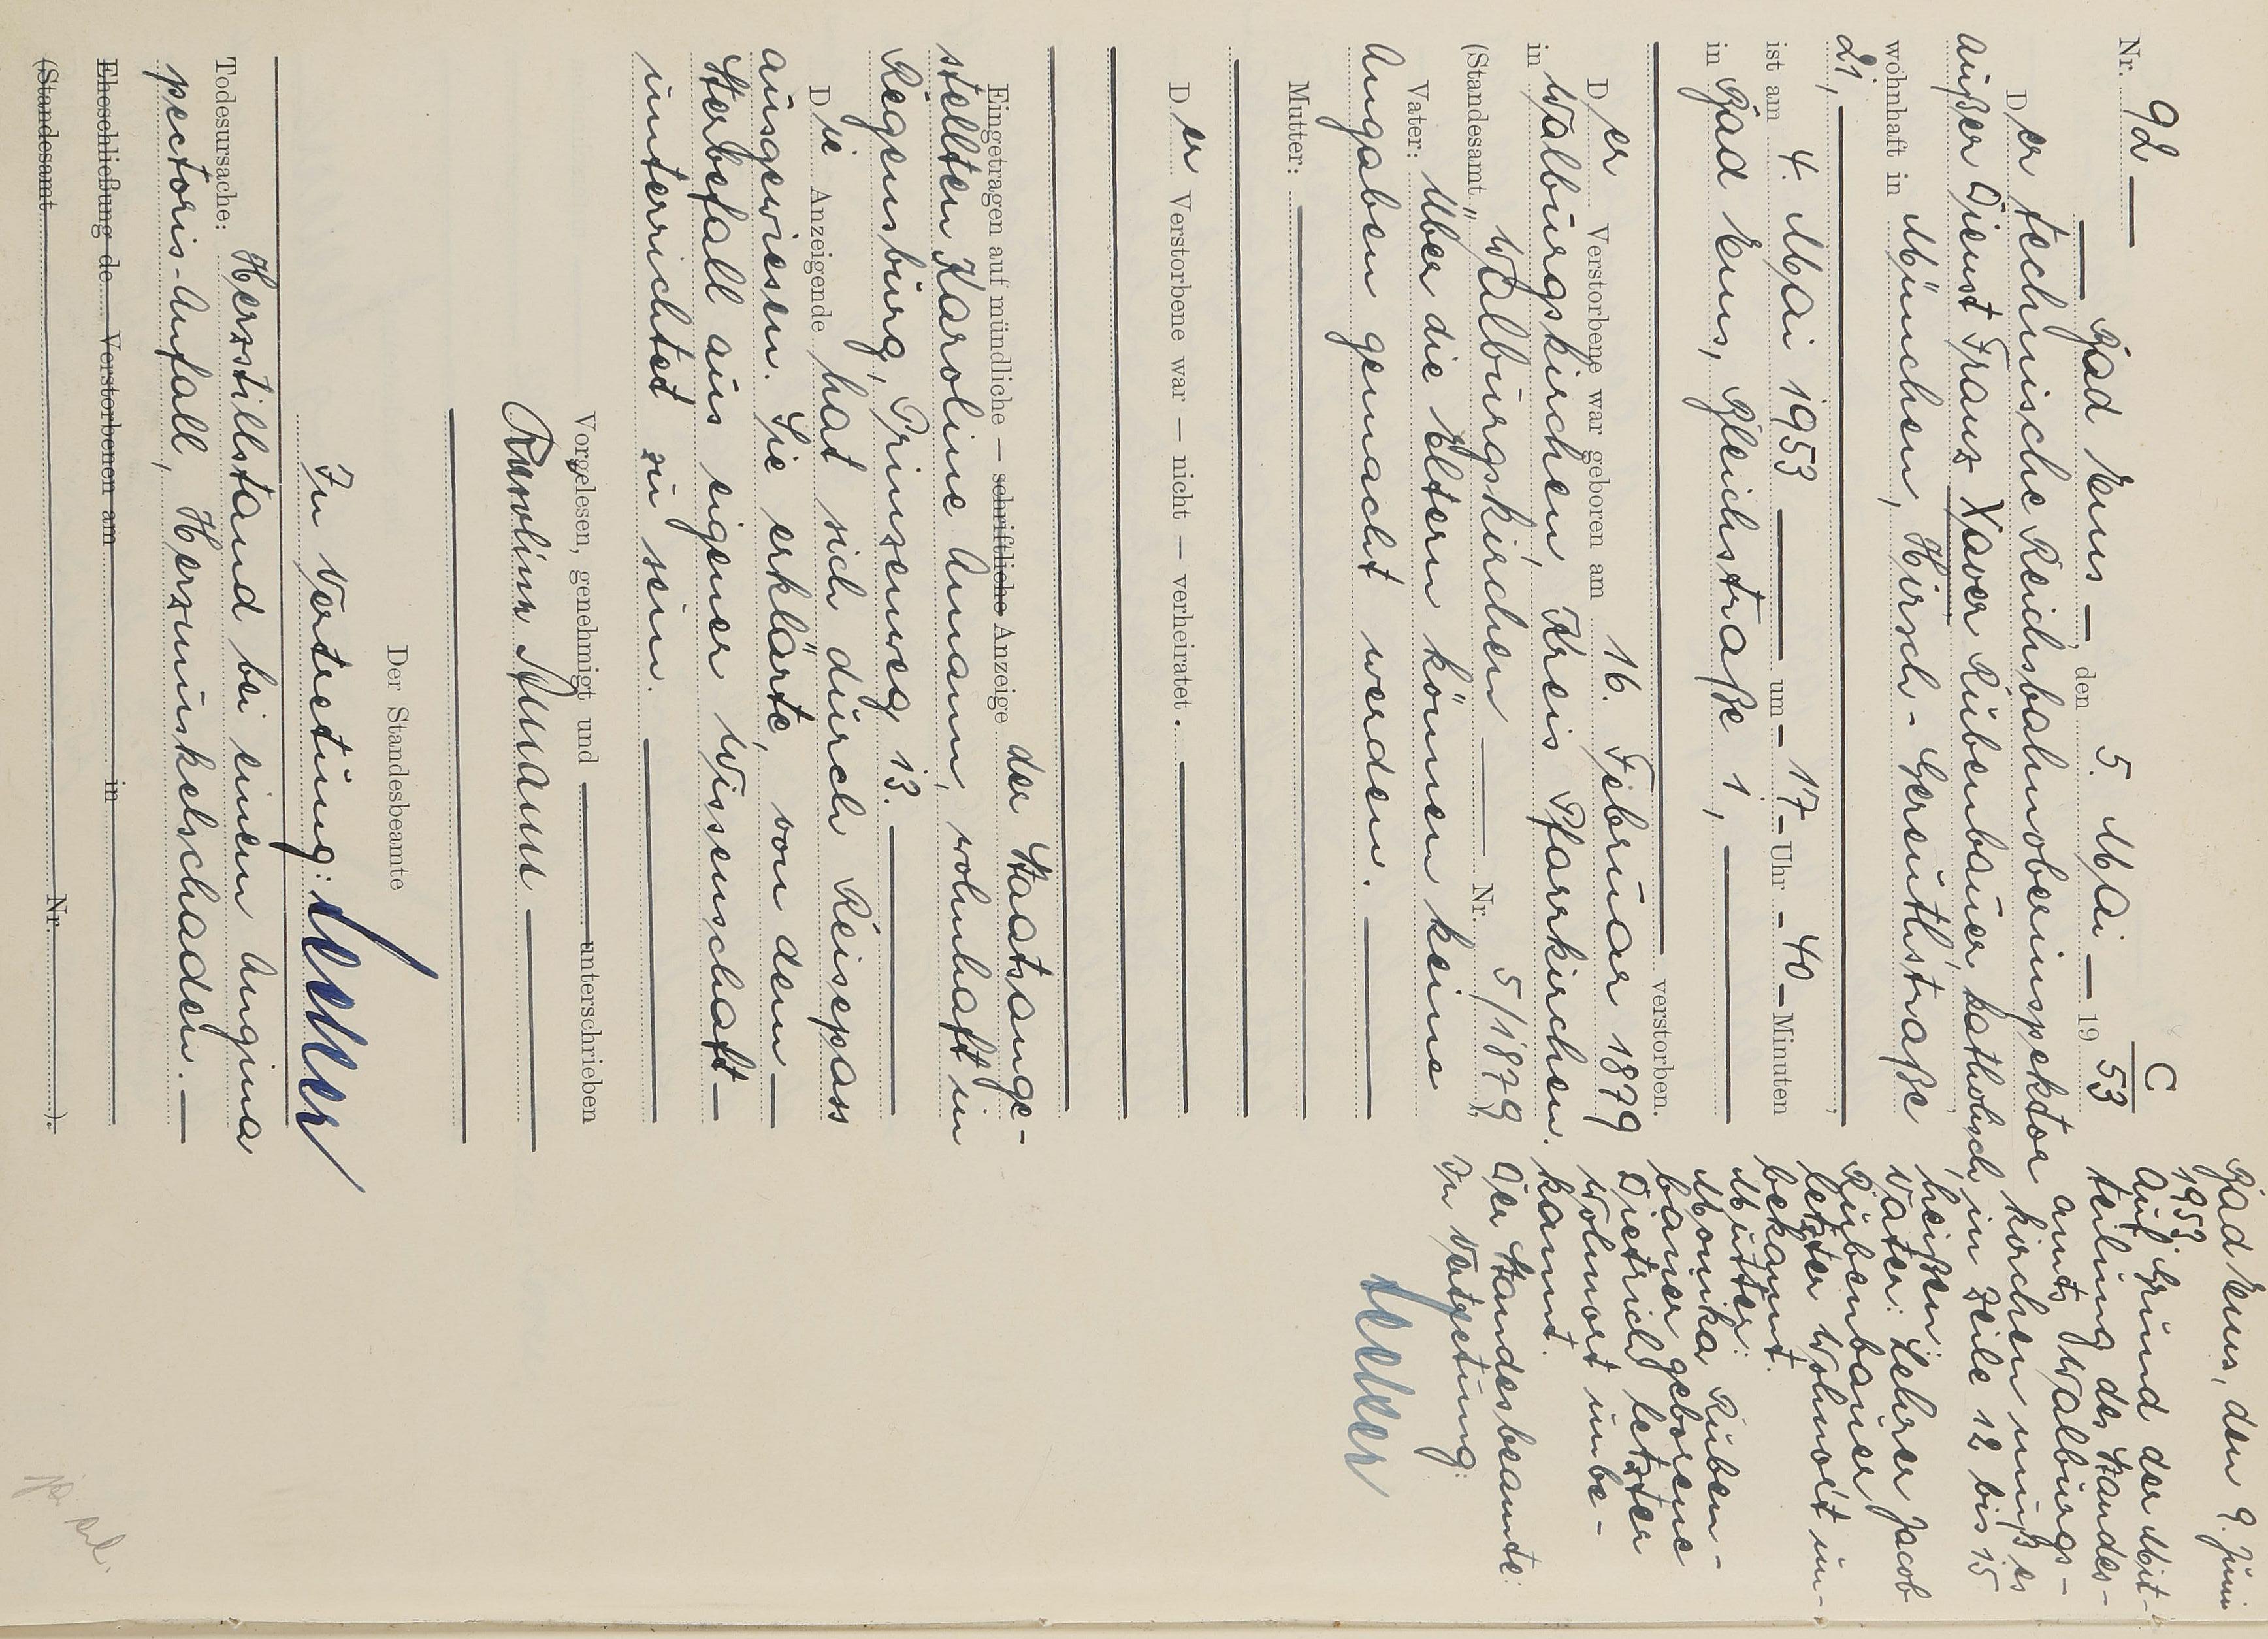 Nr. 92
C
Bad Ems, den 5. Mai 1953
Der technische Reichsbahnoberinspektor
außer Dienst Franz Xaver Rübenbauer katholisch,
wohnhaft in München, Hirsch-Gereuthstraße
21,
ist am 4. Mai 1953 um - 17 - Uhr - 40 - Minuten
in Bad Ems, Bleichstraße 1,
verstorben.
Der Verstorbene war geboren am 16. Februar 1879
in Walburgskirchen, Kreis Pfarrkirchen.
(Standesamt Walburgskirchen Nr. 5/1879)
Vater: Über die Eltern können keine
Angaben gemacht werden.
Mutter:
Der Verstorbene war — nicht — verheiratet.
Eingetragen auf mündliche — schriftliche Anzeige der Staatsange-
stellten Karoline Amann, wohnhaft in
Regensburg, Prinzenweg 13.
Die Anzeigende hat sich durch Reisepass
ausgewiesen. Sie erklärte, von dem
Sterbefall aus eigener Wissenschaft
unterrichtet zu sein.
Vorgelesen, genehmigt und unterschrieben
Karoline Amann
Der Standesbeamte
In Vertretung:
Todesursache: Herzstillstand bei einem Angina
pectoris-Anfall, Herzmuskelschaden.
Eheschließung de Verstorbenen am in
(Standesamt Nr. ).
Bad Ems, den 9. Juni
1953
Auf Grund der Mit-
teilung des Standes-
amts Walburgs-
kirchen muß es
in Zeile 12 bis 15
heißen:
Vater: Lehrer Jacob
Rübenbauer
letzter Wohnort un-
bekannt.
Mutter:
Monika Rüben-
bauer geborene
Dietrich letzter
Wohnort unbe-
kannt.
Der Standesbeamte:
In Vertretung: